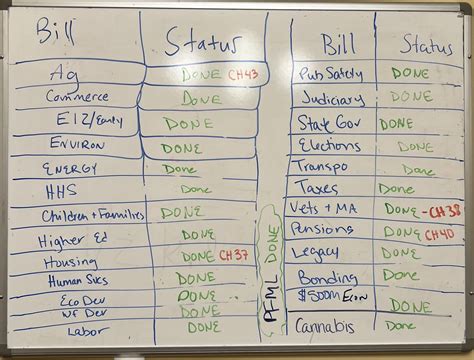 Bill Status
Ag DONE CH43
Commerce DONE
E12/Early DONE
ENVIRON DONE
ENERGY Done
HHS Done
Children + Families DONE
Higher Ed DONE
Housing DONE CH37
Human Svcs DONE
Eco Dev DONE
WF Dev DONE
Labor DONE
PFML DONE
Bill Status
Pub Safety DONE
Judiciary DONE
State Gov DONE
Elections DONE
Transpo DONE
Taxes DONE
Vets + MA DONE - CH38
Pensions DONE CH40
Legacy DONE
Bonding Done
$500m Econ DONE
Cannabis Done